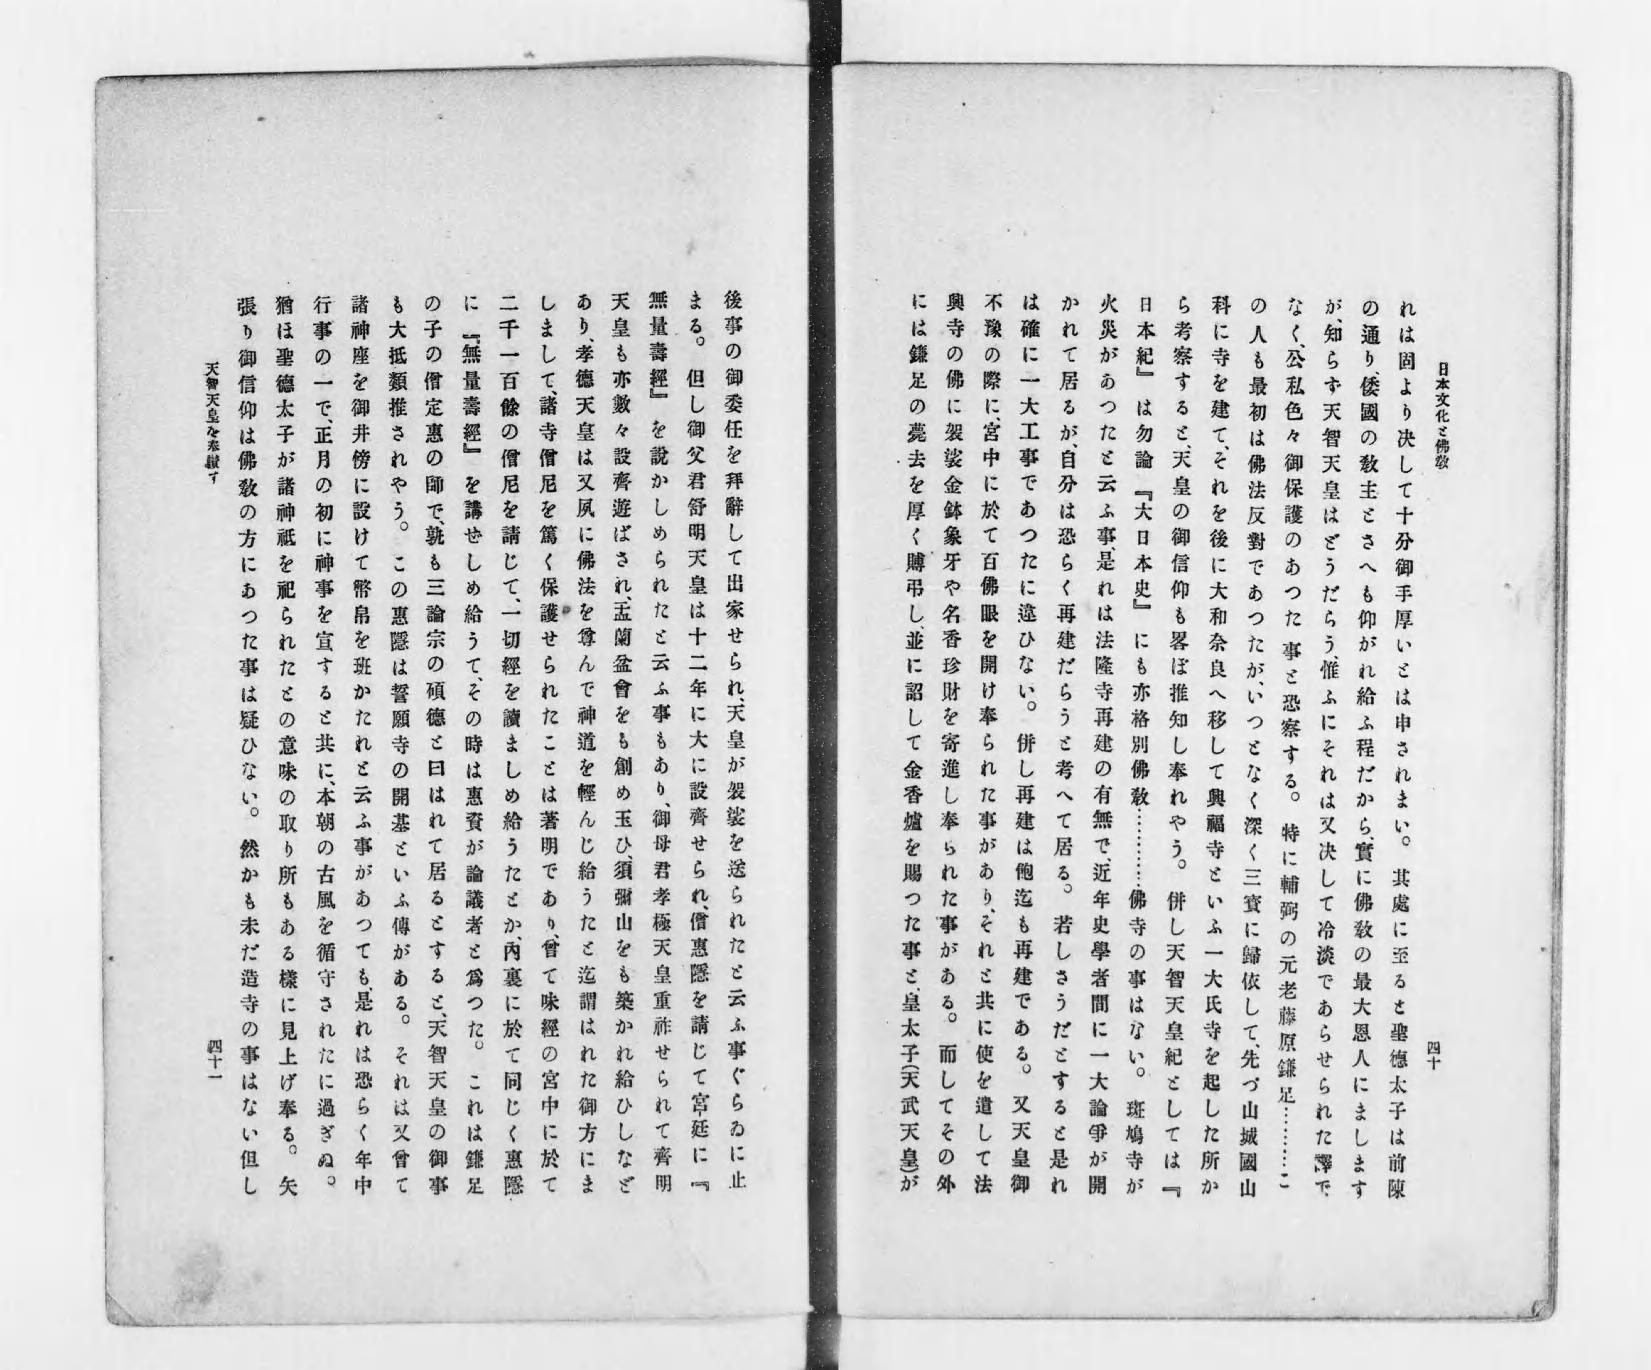 日本文化と佛敎
四十
れは固より決して十分御手厚いとは申されまい。其處に至ると聖德太子は前陳
の通り、倭國の敎主とさへも仰がれ給ふ程だから、實に佛敎の最大恩人にまします
が、知らず天智天皇はどうだらう、惟ふにそれは又決して冷淡であらせられた譯で
なく、公私色々御保護のあつた事と恐察する。特に輔弼の元老藤原鎌足…………こ
の人も最初は佛法反對であつたが、いつとなく深く三寶に歸依して、先づ山城國山
科に寺を建て、それを後に大和奈良へ移して興福寺といふ一大氏寺を起した所か
ら考察すると、天皇の御信仰も畧ぼ推知し奉れやう。併し天智天皇紀としては『
日本紀』は勿論『大日本史』にも亦格別佛敎…………佛寺の事はない。斑鳩寺が
火災があつたと云ふ事、是れは法隆寺再建の有無で、近年史學者間に一大論爭が開
かれて居るが、自分は恐らく再建だらうと考へて居る。若しさうだとすると是れ
は確に一大工事であつたに違ひない。併し再建は飽迄も再建である。又天皇御
不豫の際に、宮中に於て百佛眼を開け奉られた事があり、それと共に使を遣して法
興寺の佛に袈裟金鉢象牙や名香珍財を寄進し奉られた事がある。而してその外
には鎌足の薨去を厚く賻弔し、並に詔して金香爐を賜つた事と、皇太子(天武天皇)が
後事の御委任を拜辭して出家せられ、天皇が袈裟を送られたと云ふ事ぐらゐに止
まる。但し御父君舒明天皇は十二年に大に設齊せられ、僧惠隱を請じて宮廷に『
無量壽經』を說かしめられたと云ふ事もあり、御母君孝極天皇重祚せられて齊明
天皇も亦數々設齊遊ばされ、盂蘭盆會をも創め玉ひ、須彌山をも築かれ給ひしなど
あり、孝德天皇は又夙に佛法を尊んで神道を輕んじ給うたと迄謂はれた御方にま
しまして、諸寺僧尼を篤く保護せられたことは著明であり、曾て味經の宮中に於て
二千一百餘の僧尼を請じて、一切經を讀ましめ給うたとか、內裏に於て同じく惠隱
に『無量壽經』を講せしめ給うて、その時は惠資が論議者と爲つた。これは鎌足
の子の僧定惠の師で、孰も三論宗の碩德と曰はれて居るとすると、天智天皇の御事
も大抵類推されやう。この惠隱は誓願寺の開基といふ傳がある。それは又曾て
諸神座を御井傍に設けて幣帛を班かたれと云ふ事があつても、是れは恐らく年中
行事の一で、正月の初に神事を宣すると共に、本朝の古風を循守されたに過ぎぬ。
猶ほ聖德太子が諸神祇を祀られたとの意味の取り所もある樣に見上げ奉る。矢
張り御信仰は佛敎の方にあつた事は疑ひない。然かも未だ造寺の事はない但し
天智天皇を奉讃す
四十一